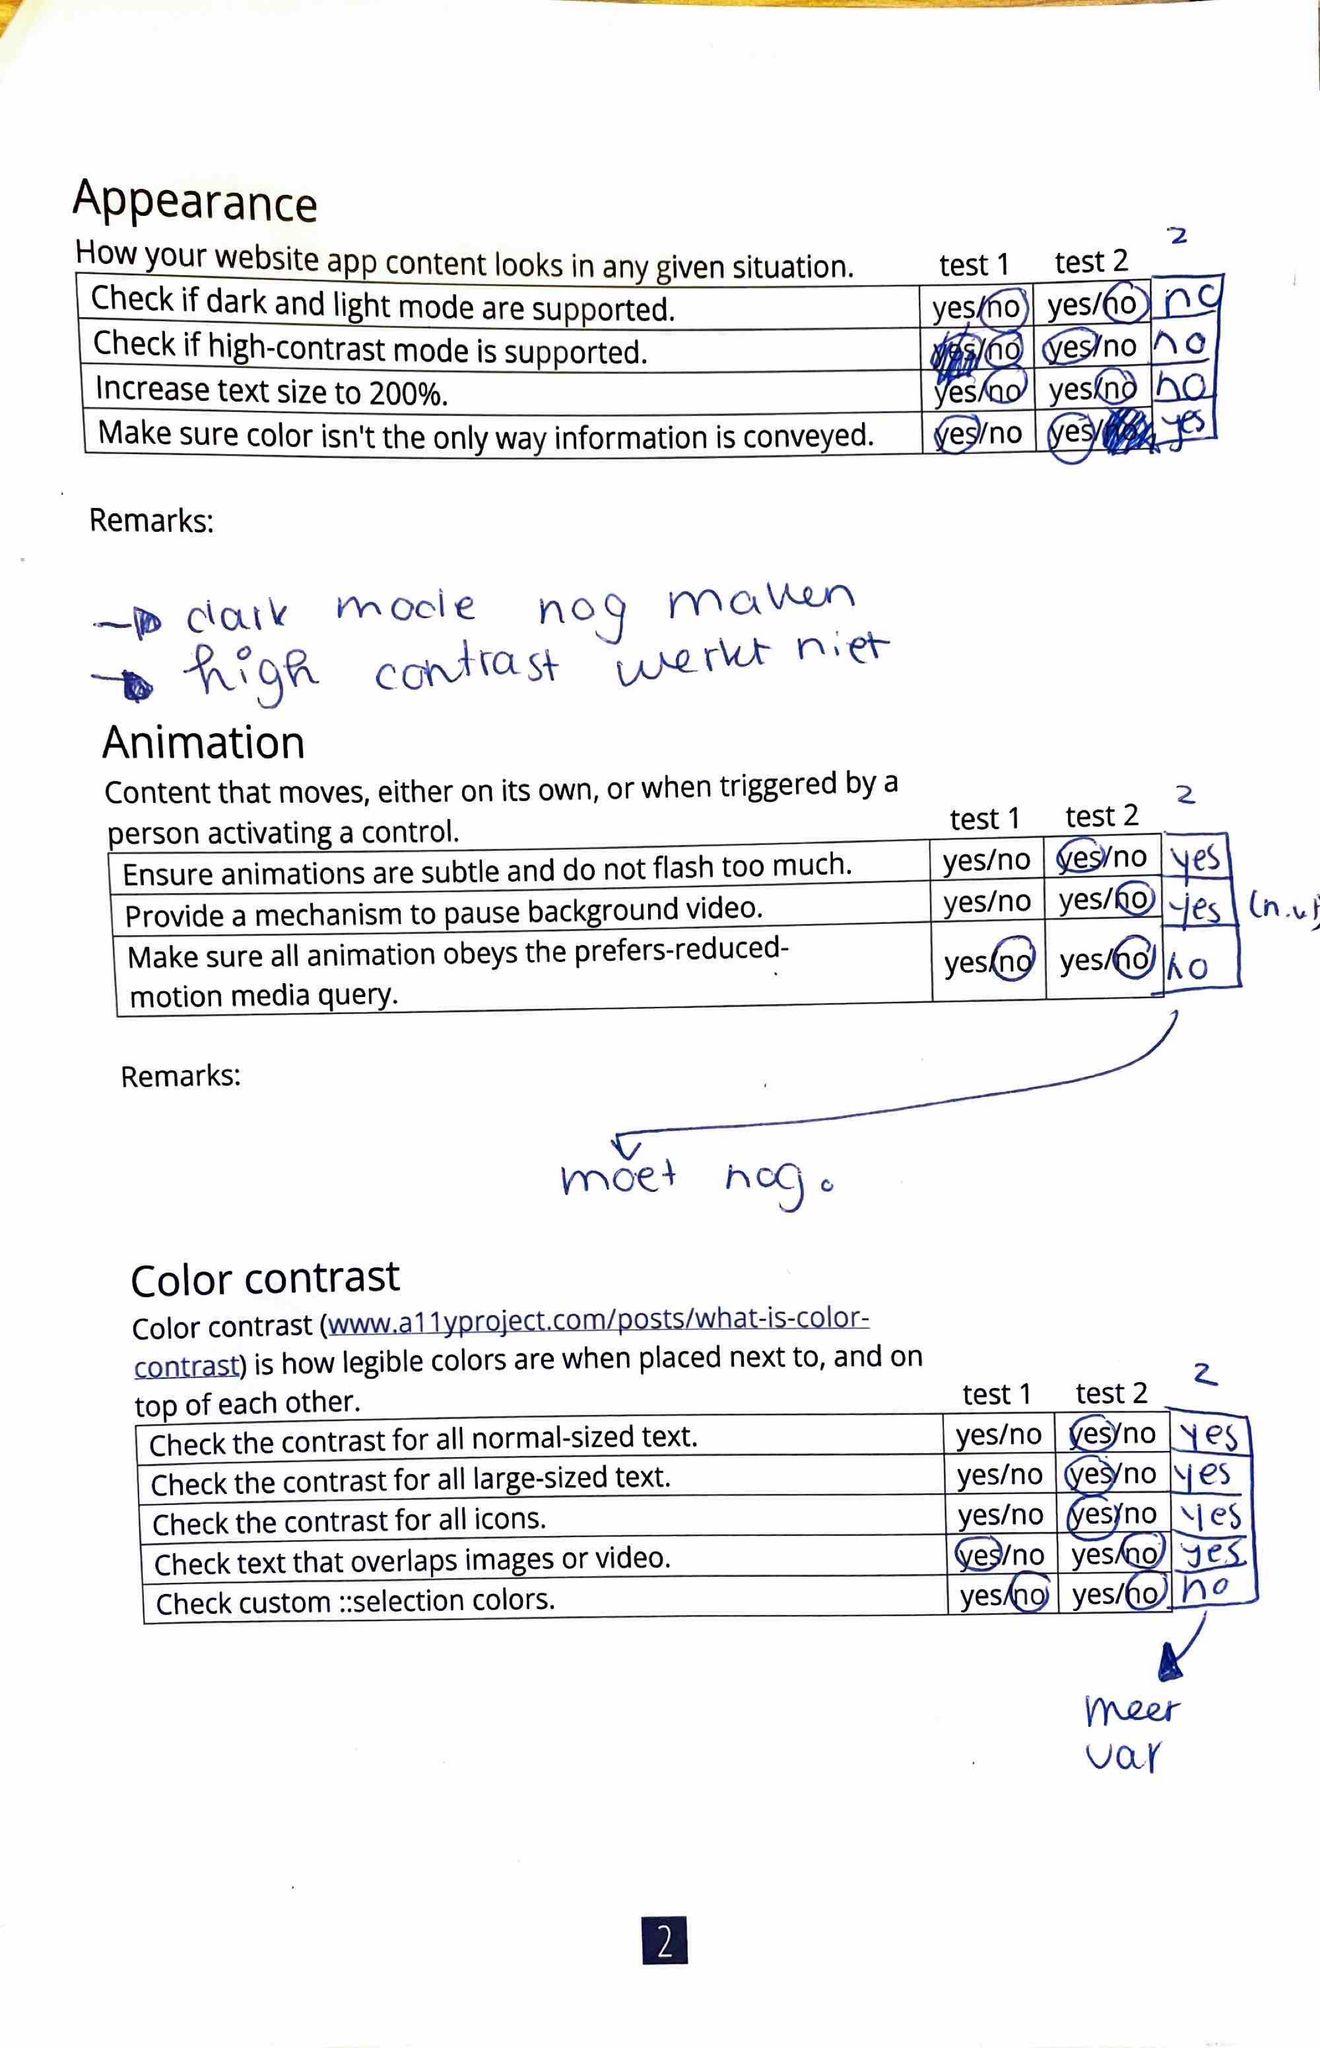 Appearance
2
How your website app content looks in any given situation. test 1 test 2
Check if dark and light mode are supported. yes/no yes/no no
Check if high-contrast mode is supported. yes/no yes/no no
Increase text size to 200%. yes/no yes/no no
Make sure color isn't the only way information is conveyed. yes/no yes/ yes
Remarks:
dark mode nog maken
high contrast werkt niet
Animation
Content that moves, either on its own, or when triggered by a 2
person activating a control. test 1 test 2
Ensure animations are subtle and do not flash too much. yes/no yes/no yes
Provide a mechanism to pause background video. yes/no yes/no yes (n.v)
Make sure all animation obeys the prefers-reduced-
motion media query. yes/no yes/no no
Remarks:
moet nog.
Color contrast
Color contrast (www.a11yproject.com/posts/what-is-color-
contrast) is how legible colors are when placed next to, and on 2
top of each other. test 1 test 2
Check the contrast for all normal-sized text. yes/no yes/no yes
Check the contrast for all large-sized text. yes/no yes/no yes
Check the contrast for all icons. yes/no yes/no yes
Check text that overlaps images or video. yes/no yes/no yes
Check custom ::selection colors. yes/no yes/no no
meer
var
2